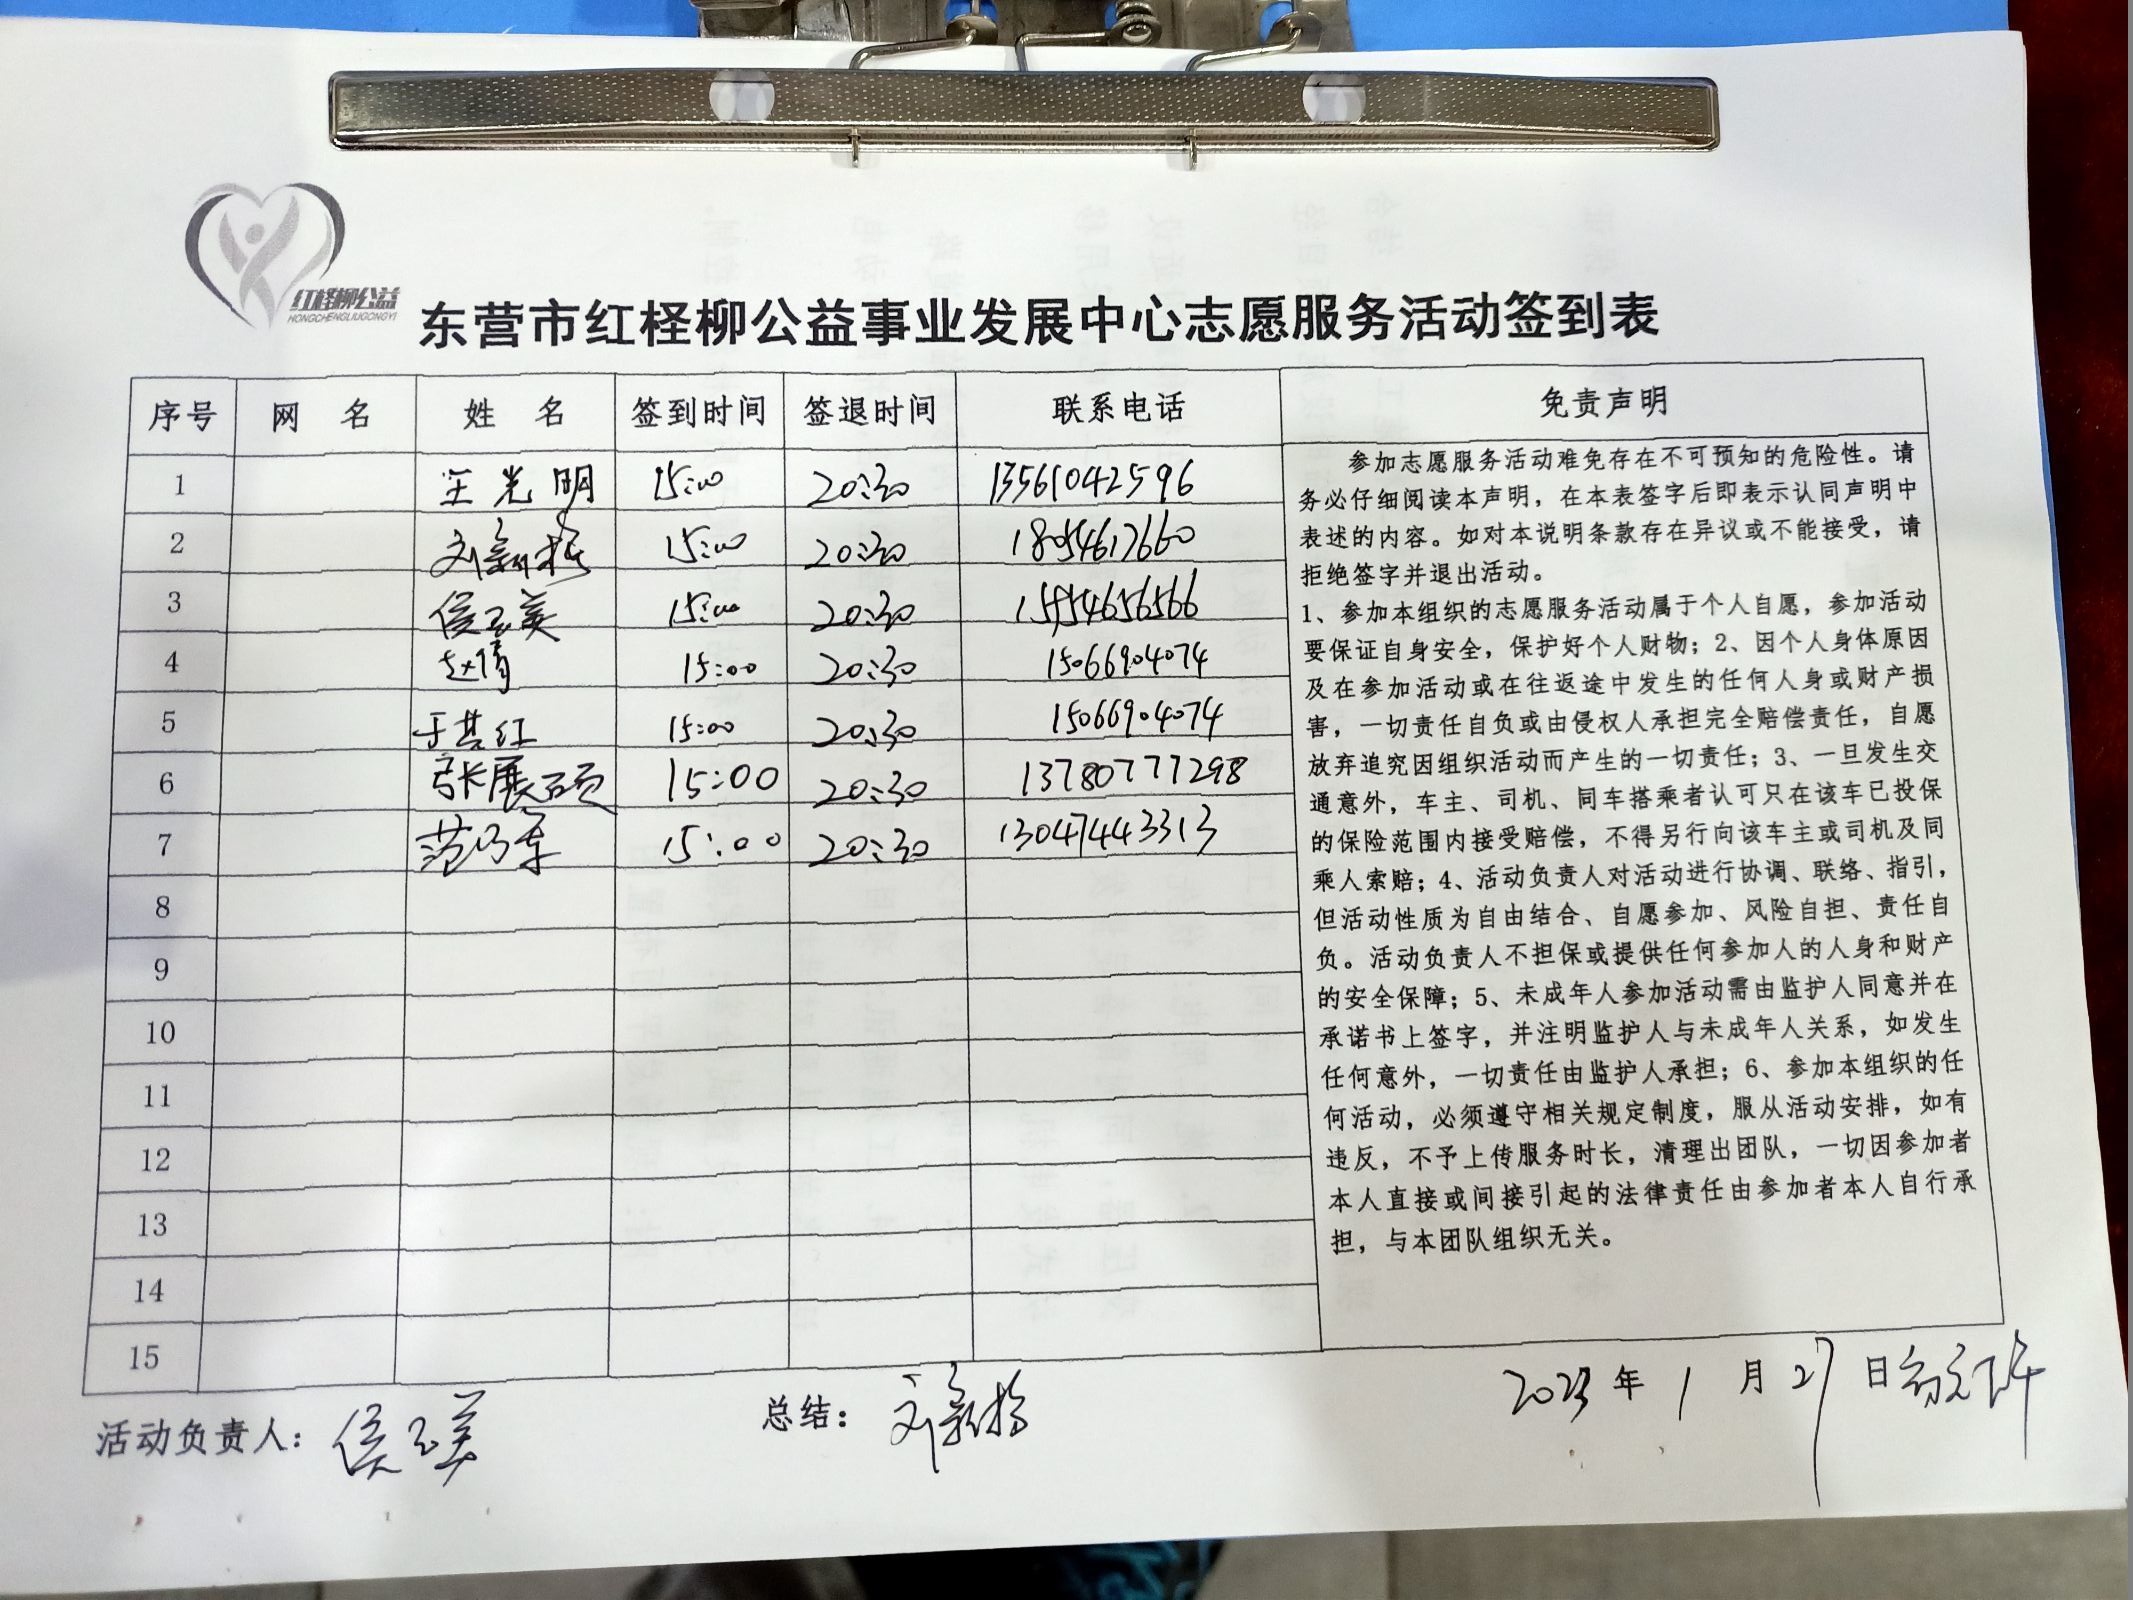 红柽柳公益
HONGCHENGLIUGONGYI
东营市红柽柳公益事业发展中心志愿服务活动签到表
序号 网 名 姓 名 签到时间 签退时间 联系电话 免责声明
1 王光明 15:00 20:30 13561042596
2 刘新 15:00 20:30 18054617660
3 侯玉美 15:00 20:30 15954656566
4 赵倩 15:00 20:30 15066904074
5 于其红 15:00 20:30 15066904074
6 张展硕 15:00 20:30 13780777298
7 范乃军 15:00 20:30 13047443313
8
9
10
11
12
13
14
15
参加志愿服务活动难免存在不可预知的危险性。请
务必仔细阅读本声明，在本表签字后即表示认同声明中
表述的内容。如对本说明条款存在异议或不能接受，请
拒绝签字并退出活动。
1、参加本组织的志愿服务活动属于个人自愿，参加活动
要保证自身安全，保护好个人财物；2、因个人身体原因
及在参加活动或在往返途中发生的任何人身或财产损
害，一切责任自负或由侵权人承担完全赔偿责任，自愿
放弃追究因组织活动而产生的一切责任；3、一旦发生交
通意外，车主、司机、同车搭乘者认可只在该车已投保
的保险范围内接受赔偿，不得另行向该车主或司机及同
乘人索赔；4、活动负责人对活动进行协调、联络、指引，
但活动性质为自由结合、自愿参加、风险自担、责任自
负。活动负责人不担保或提供任何参加人的人身和财产
的安全保障；5、未成年人参加活动需由监护人同意并在
承诺书上签字，并注明监护人与未成年人关系，如发生
任何意外，一切责任由监护人承担；6、参加本组织的任
何活动，必须遵守相关规定制度，服从活动安排，如有
违反，不予上传服务时长，清理出团队，一切因参加者
本人直接或间接引起的法律责任由参加者本人自行承
担，与本团队组织无关。
活动负责人：侯玉美 总结：刘新 2023年1月27日